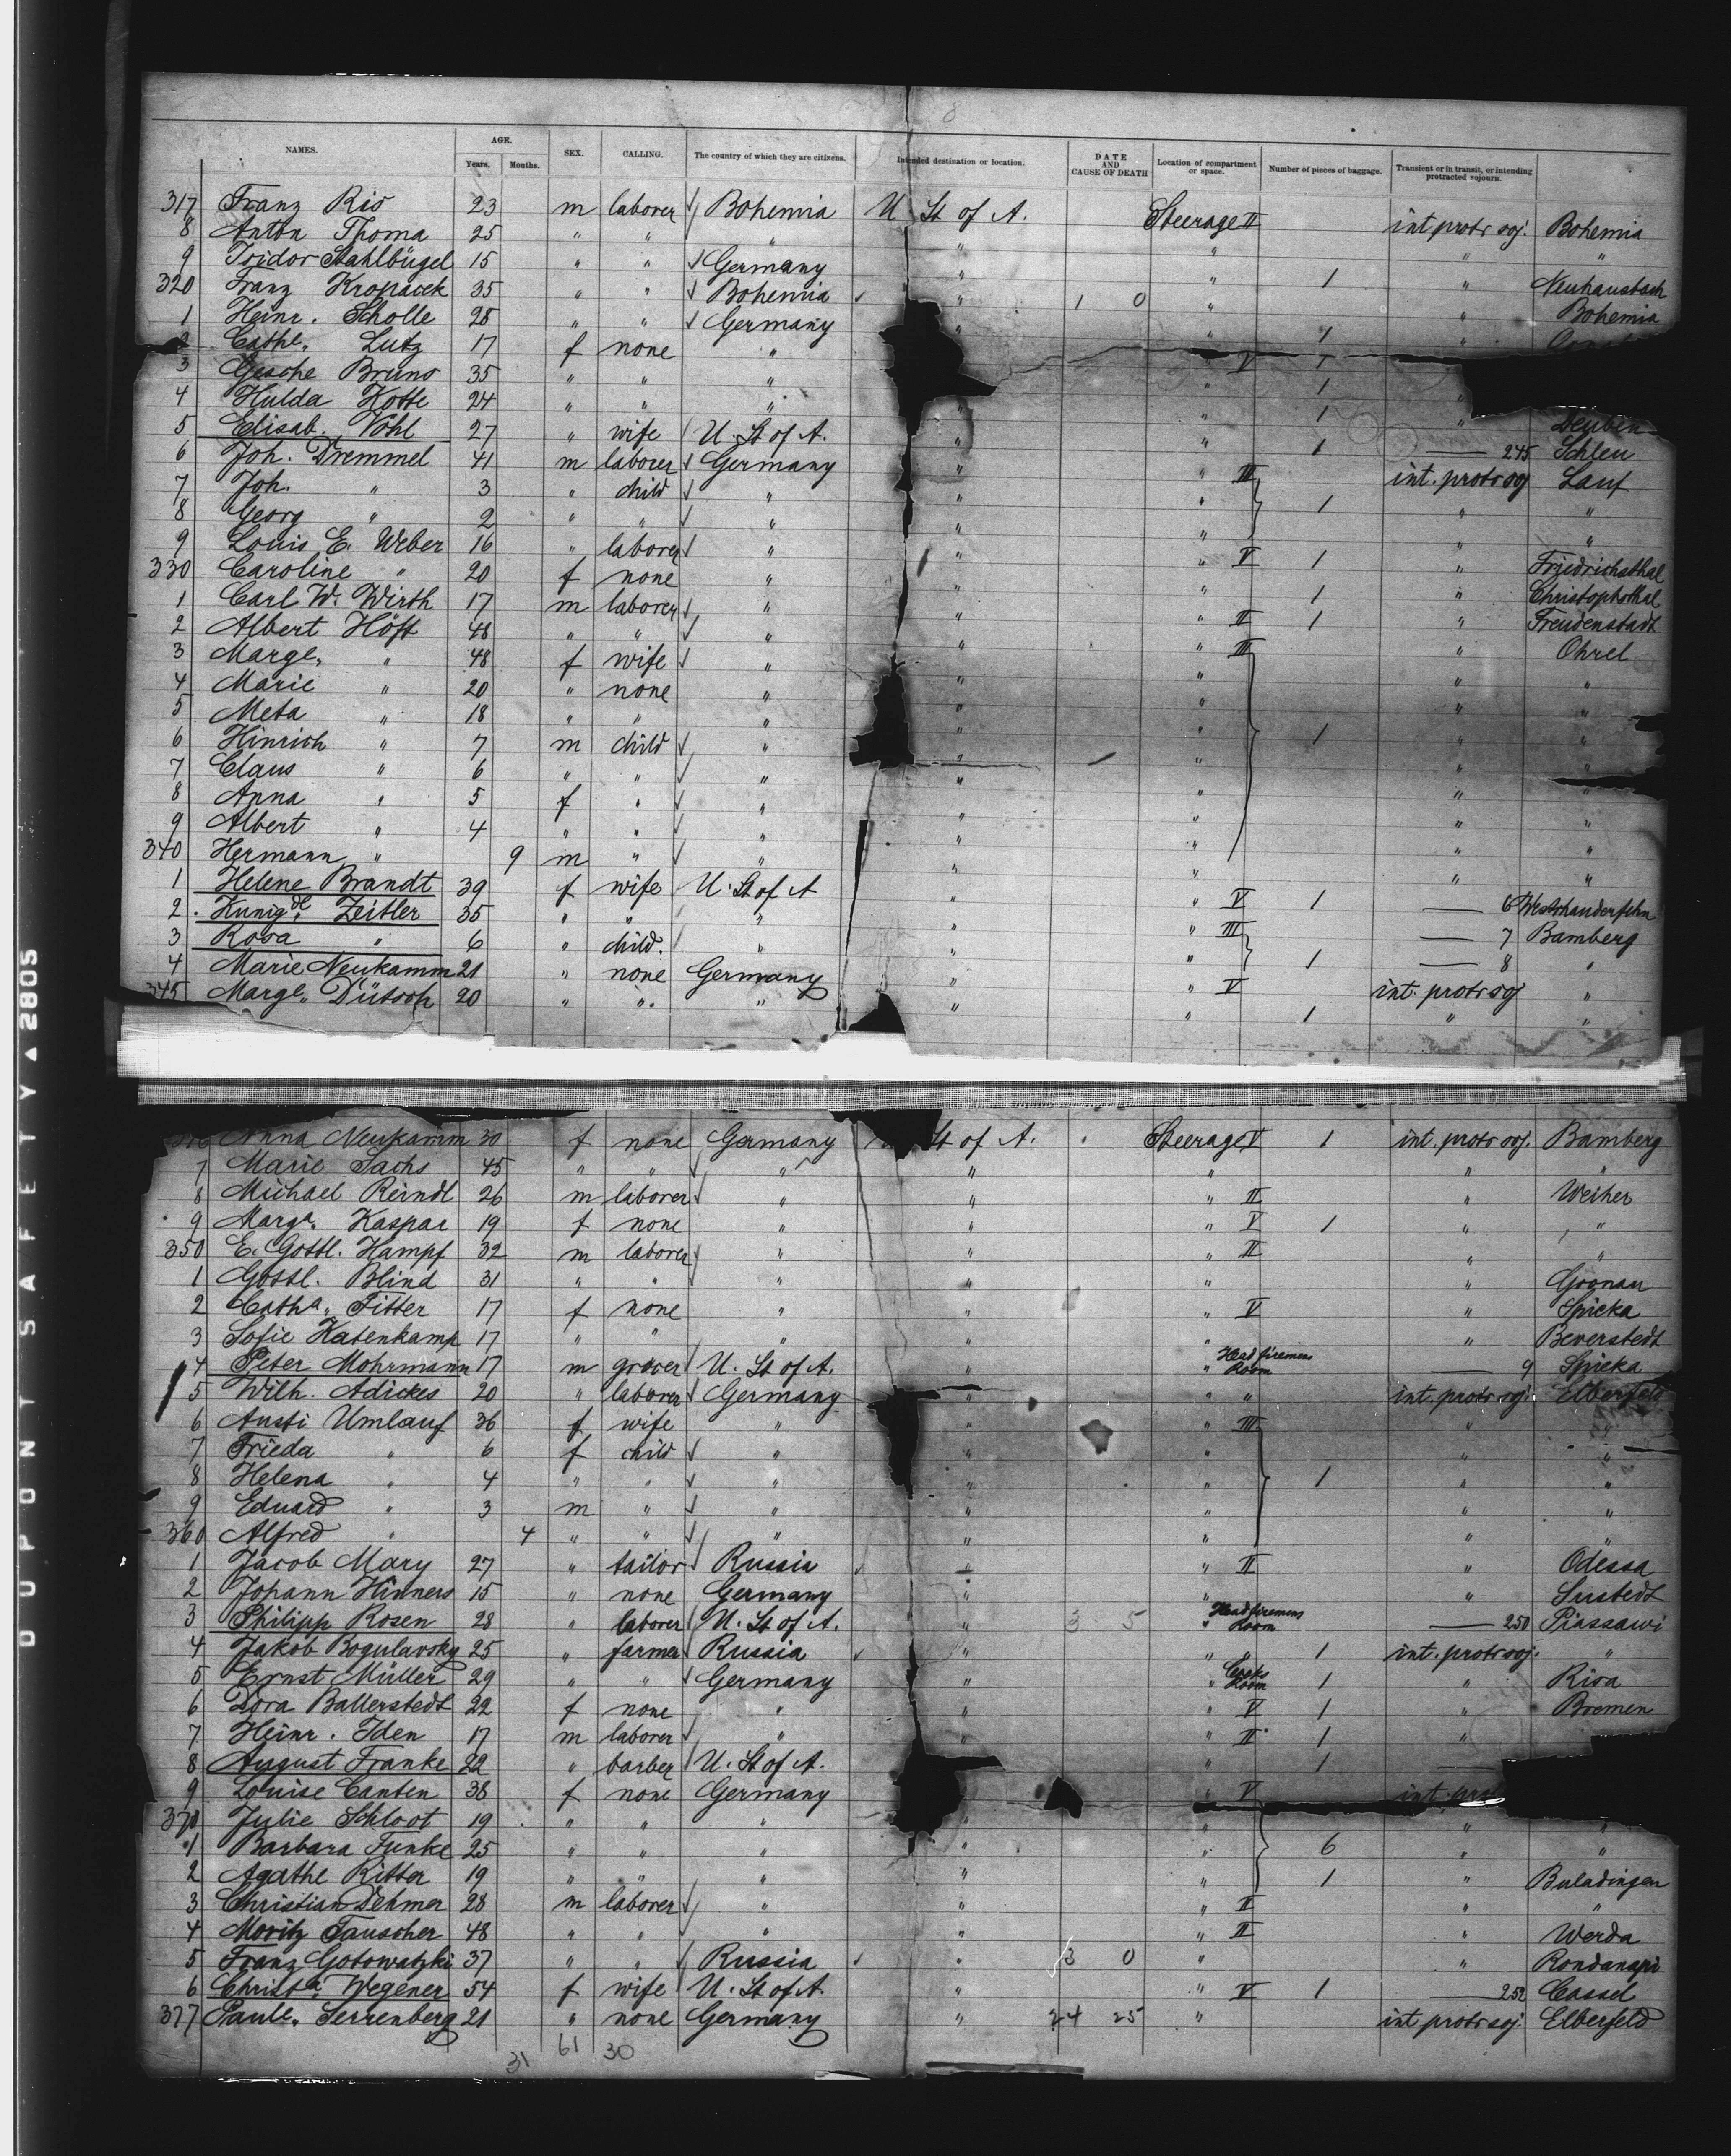 8
NAMES. AGE. Years. Months. SEX. CALLING. The country of which they are citizens. Intended destination or location. DATE AND CAUSE OF DEATH Location of compartment or space. Number of pieces of baggage. Transient or in transit, or intending protracted sojourn.
317 Franz Ris 23 m laborer Bohemia U St of A. Steerage II int protr soj. Bohemia
8 Anton Thoma 25 " " " " " " "
9 Isidor Stahlbügel 15 " " Germany " " 1 " Neuhausbach
320 Franz Kropacek 35 " " Bohemia " 1 0 " " Bohemia
1 Heinr. Scholle 28 " " Germany " " 1 "
Cathe. Lutz 17 f none " V 1
3 Gesche Bruns 35 " " " " 1 "
4 Hulda Kotte 24 " " " " " 1 " Deuben
5 Elisab. Vohl 27 " wife U. St of A. " " 1 — 245 Schleu
6 Joh. Dremmel 41 m laborer Germany " " III int. protr soj Lauf
7 Joh. " 3 " child " " " 1 " "
8 Georg " 2 " " " " " " "
9 Louis E. Weber 16 " laborer " " " V 1 " Friedrichsthal
330 Caroline " 20 f none " " " 1 " Christophsthal
1 Carl W. Wirth 17 m laborer " " " II 1 " Freudenstadt
2 Albert Höft 48 " " " " " III " Ohrel
3 Marge. " 48 f wife " " " " "
4 Marie " 20 " none " " " " "
5 Meta " 18 " " " " " " "
6 Hinrich " 7 m child " " " 1 " "
7 Claus " 6 " " " " " " "
8 Anna " 5 f " " " " " "
9 Albert " 4 " " " " " " "
340 Hermann " 9 m " " " " " "
1 Helene Brandt 39 f wife U. St of A " " V 1 — 6 Westrhauderfehn
2 Kunigde. Zeitler 35 " " " " " III — 7 Bamberg
3 Rosa " 6 " child. " " " 1 — 8 "
4 Marie Neukamm 21 " none Germany " " V int. protr soj "
345 Marge. Dütsch 20 " " " " " 1 " "
Anna Neukamm 30 f none Germany St of A. Steerage V 1 int. protr soj. Bamberg
7 Marie Sachs 45 " " " " " " "
8 Michael Reindl 26 m laborer " " " II " Weiher
9 Marga. Kaspar 19 f none " " " V 1 " "
350 E. Gottl. Hampf 32 m laborer " " " II " "
1 Gottl. Blind 31 " " " " " " Gronau
2 Catha. Fitter 17 f none " " " V " Spieka
3 Sofie Katenkamp 17 " " " " " " Beverstedt
4 Peter Mohrmann 17 m grocer U. St of A. " " Head firemens Room — 9 Spieka
5 Wilh. Adickes 20 " laborer Germany " " " int. protr soj. Elberfeld
6 Austi Umlauf 36 f wife " " " III " "
7 Frieda " 6 f child " " " " "
8 Helena " 4 " " " " " 1 " "
9 Eduard " 3 m " " " " " "
360 Alfred " 4 " " " " " " "
1 Jacob Mary 27 " tailor Russia " " II " Odessa
2 Johann Hinners 15 " none Germany " " " Sustedt
3 Philipp Rosen 28 " laborer U. St of A. " 3 5 " Head firemens Room — 250 Piassawi
4 Jakob Bogulavsky 25 " farmer Russia " " " 1 int. protr soj. "
5 Ernst Müller 29 " " Germany " " Cooks Room 1 " Risa
6 Dora Ballerstedt 22 f none " " " V 1 " Bremen
7 Heinr. Iden 17 m laborer " " II 1 "
8 August Franke 22 " barber U. St of A. " 1 —
9 Louise Canten 38 f none Germany " V int. pr
370 Julie Schloot 19 " " " " " " "
1 Barbara Funke 25 " " " " " 6 " "
2 Agathe Ritter 19 " " " " " 1 " Buladingen
3 Christian Dehmer 28 m laborer " " " II " "
4 Moritz Tauscher 48 " " " " " II " Werda
5 Franz Gotowatzki 37 " " Russia " 3 0 " " Rondanapi
6 Christa. Wegener 54 f wife U. St of A. " " V 1 — 252 Cassel
377 Paule. Serrenberg 21 " none Germany " 24 25 " int protr soj. Elberfeld
31 61 30
DUPONT SAFETY ▲ 2805